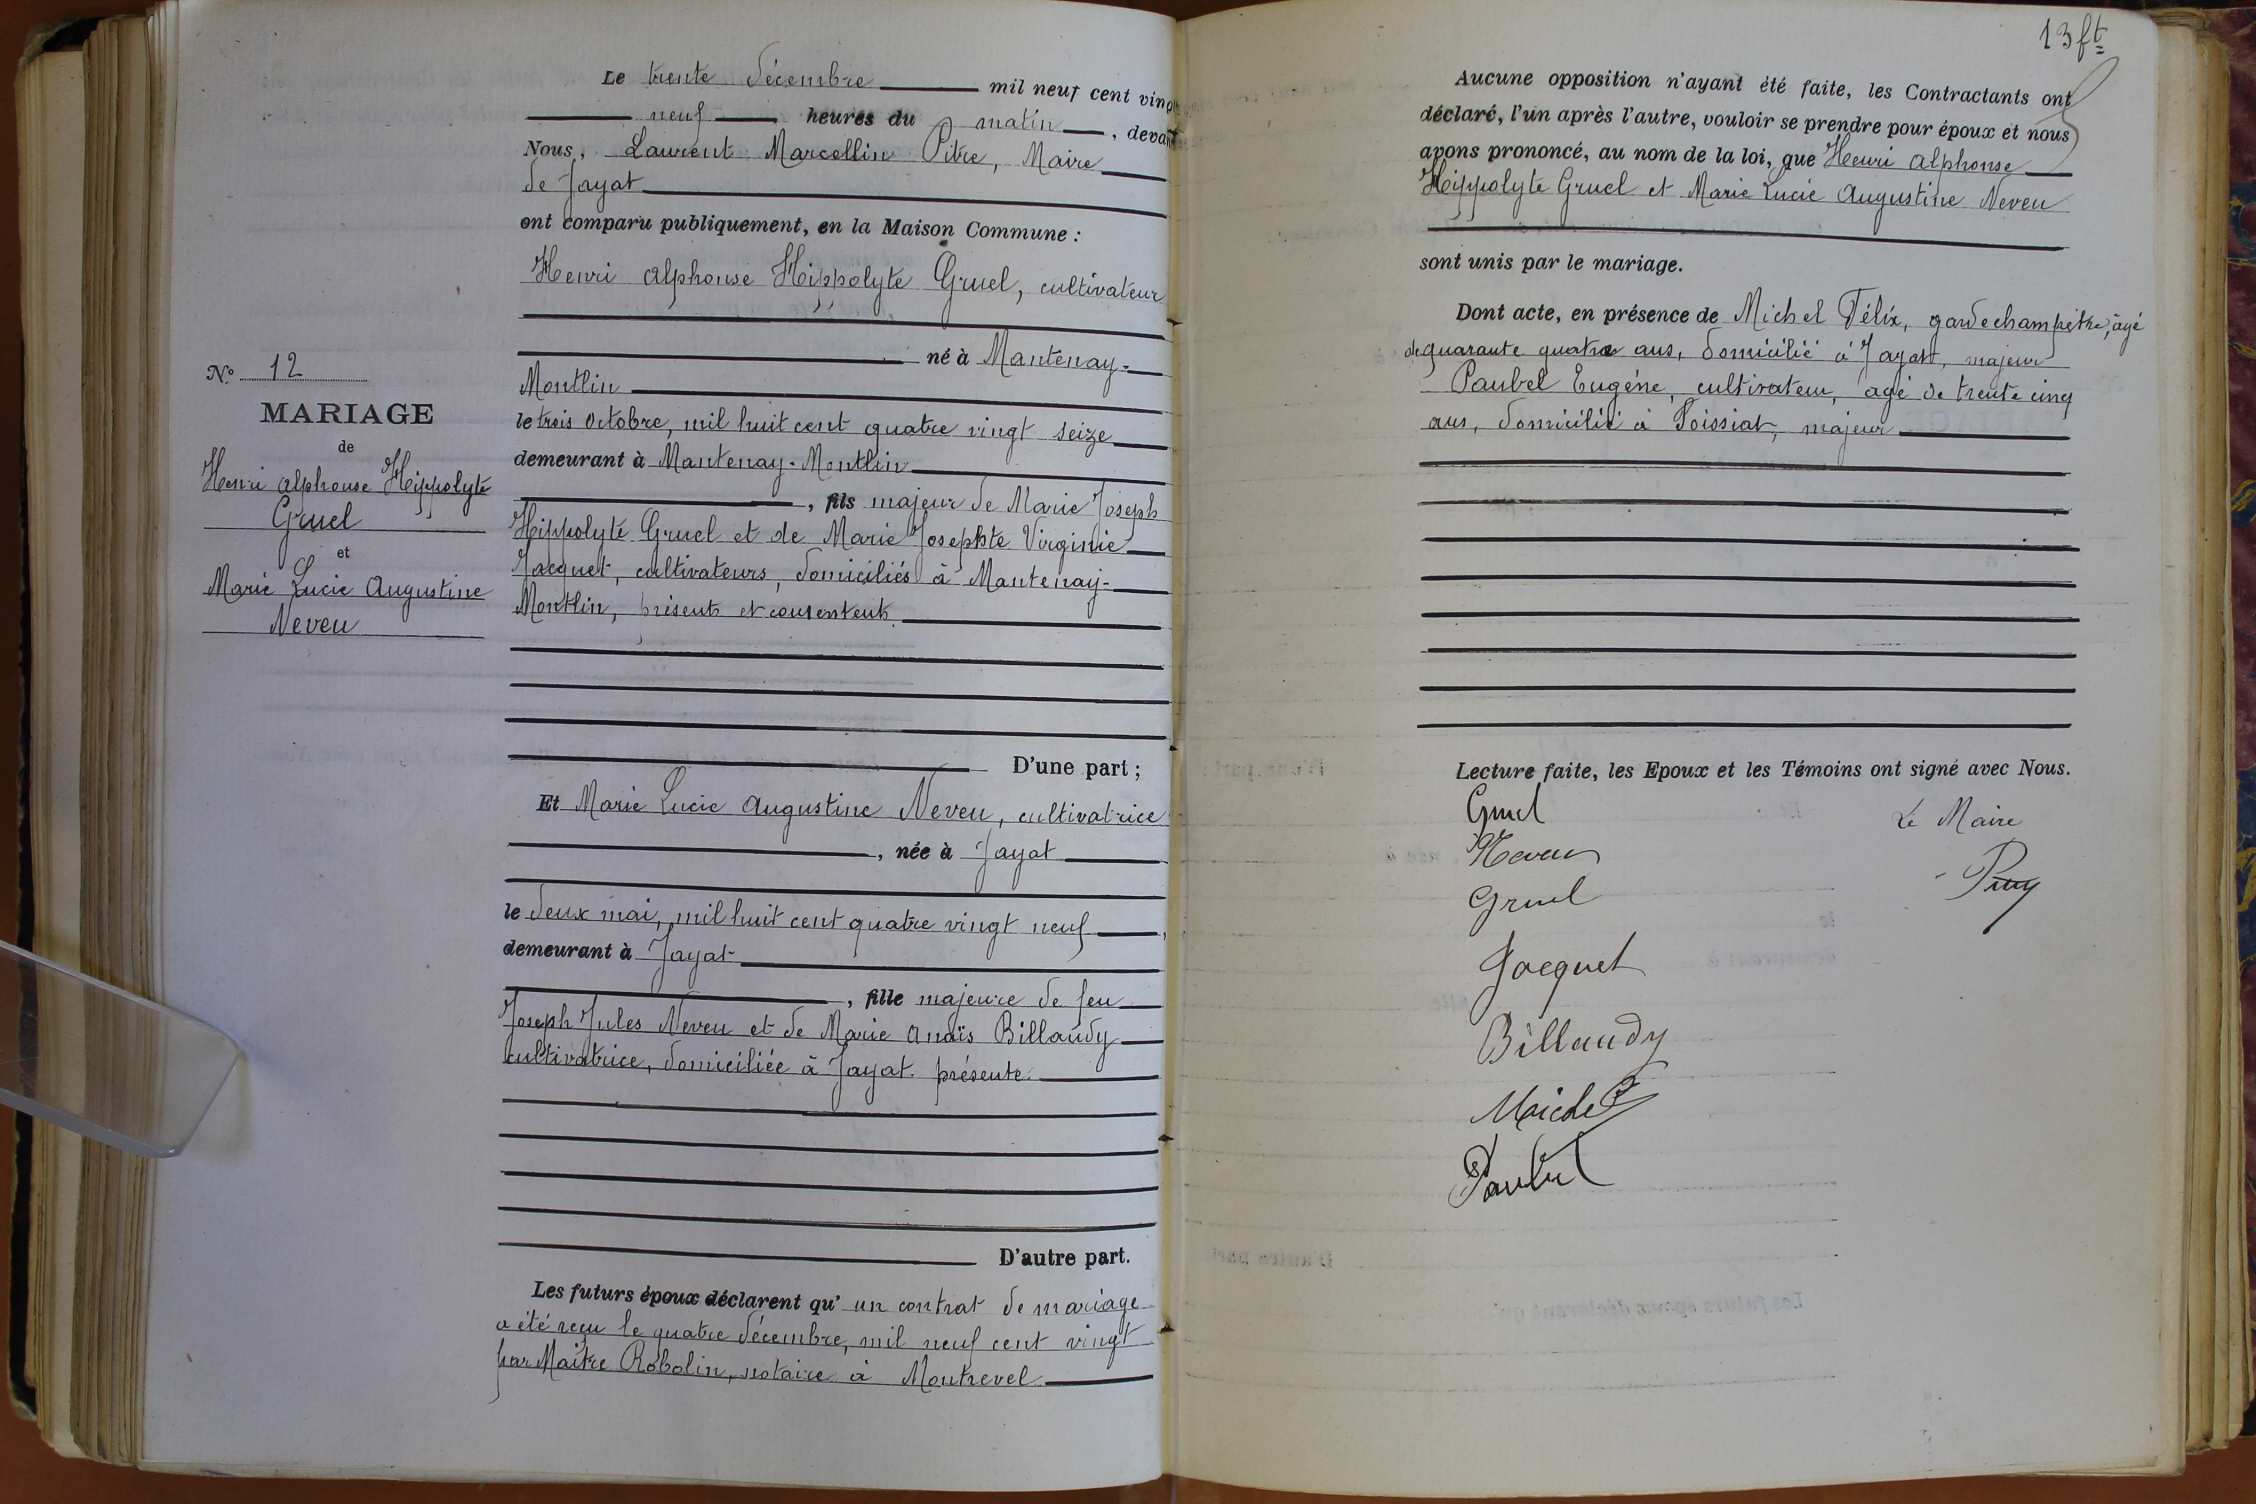 Le trente décembre mil neuf cent vingt
neuf heures du matin, devant
Nous, Laurent Marcellin Pitre, Maire
de Jayat
ont comparu publiquement, en la Maison Commune :
Henri Alphonse Hippolyte Gruel, cultivateur
né à Mantenay-
Montlin
le trois octobre, mil huit cent quatre vingt seize
demeurant à Mantenay-Montlin
, fils majeur de Marie Joseph
Hippolyte Gruel et de Marie Josephte Virginie
Jacquet, cultivateurs, domiciliés à Mantenay-
Montlin, présents et consentents.
D'une part ;
Et Marie Lucie Augustine Neveu, cultivatrice
, née à Jayat
le deux mai, mil huit cent quatre vingt neuf,
demeurant à Jayat
, fille majeure de feu
Joseph Jules Neveu et de Marie Anaïs Billaudy
cultivatrice, domiciliée à Jayat. présente.
D'autre part.
Les futurs époux déclarent qu'un contrat de mariage
a été reçu le quatre décembre, mil neuf cent vingt
par Maître Robolin, notaire à Montrevel
N° 12
MARIAGE
de
Henri Alphonse Hippolyte
Gruel
et
Marie Lucie Augustine
Neveu
13 ft
Aucune opposition n'ayant été faite, les Contractants ont
déclaré, l'un après l'autre, vouloir se prendre pour époux et nous
avons prononcé, au nom de la loi, que Henri Alphonse
Hippolyte Gruel et Marie Lucie Augustine Neveu
sont unis par le mariage.
Dont acte, en présence de Michel Félix, garde champêtre, âgé
de quarante quatre ans, domicilié à Jayat, majeur
Paubel Eugène, cultivateur, âgé de trente cinq
ans, domicilié à Foissiat, majeur
Lecture faite, les Epoux et les Témoins ont signé avec Nous.
Gruel
Le Maire
Neveu
Gruel
Jacquet
Billaudy
Michel
Paubel